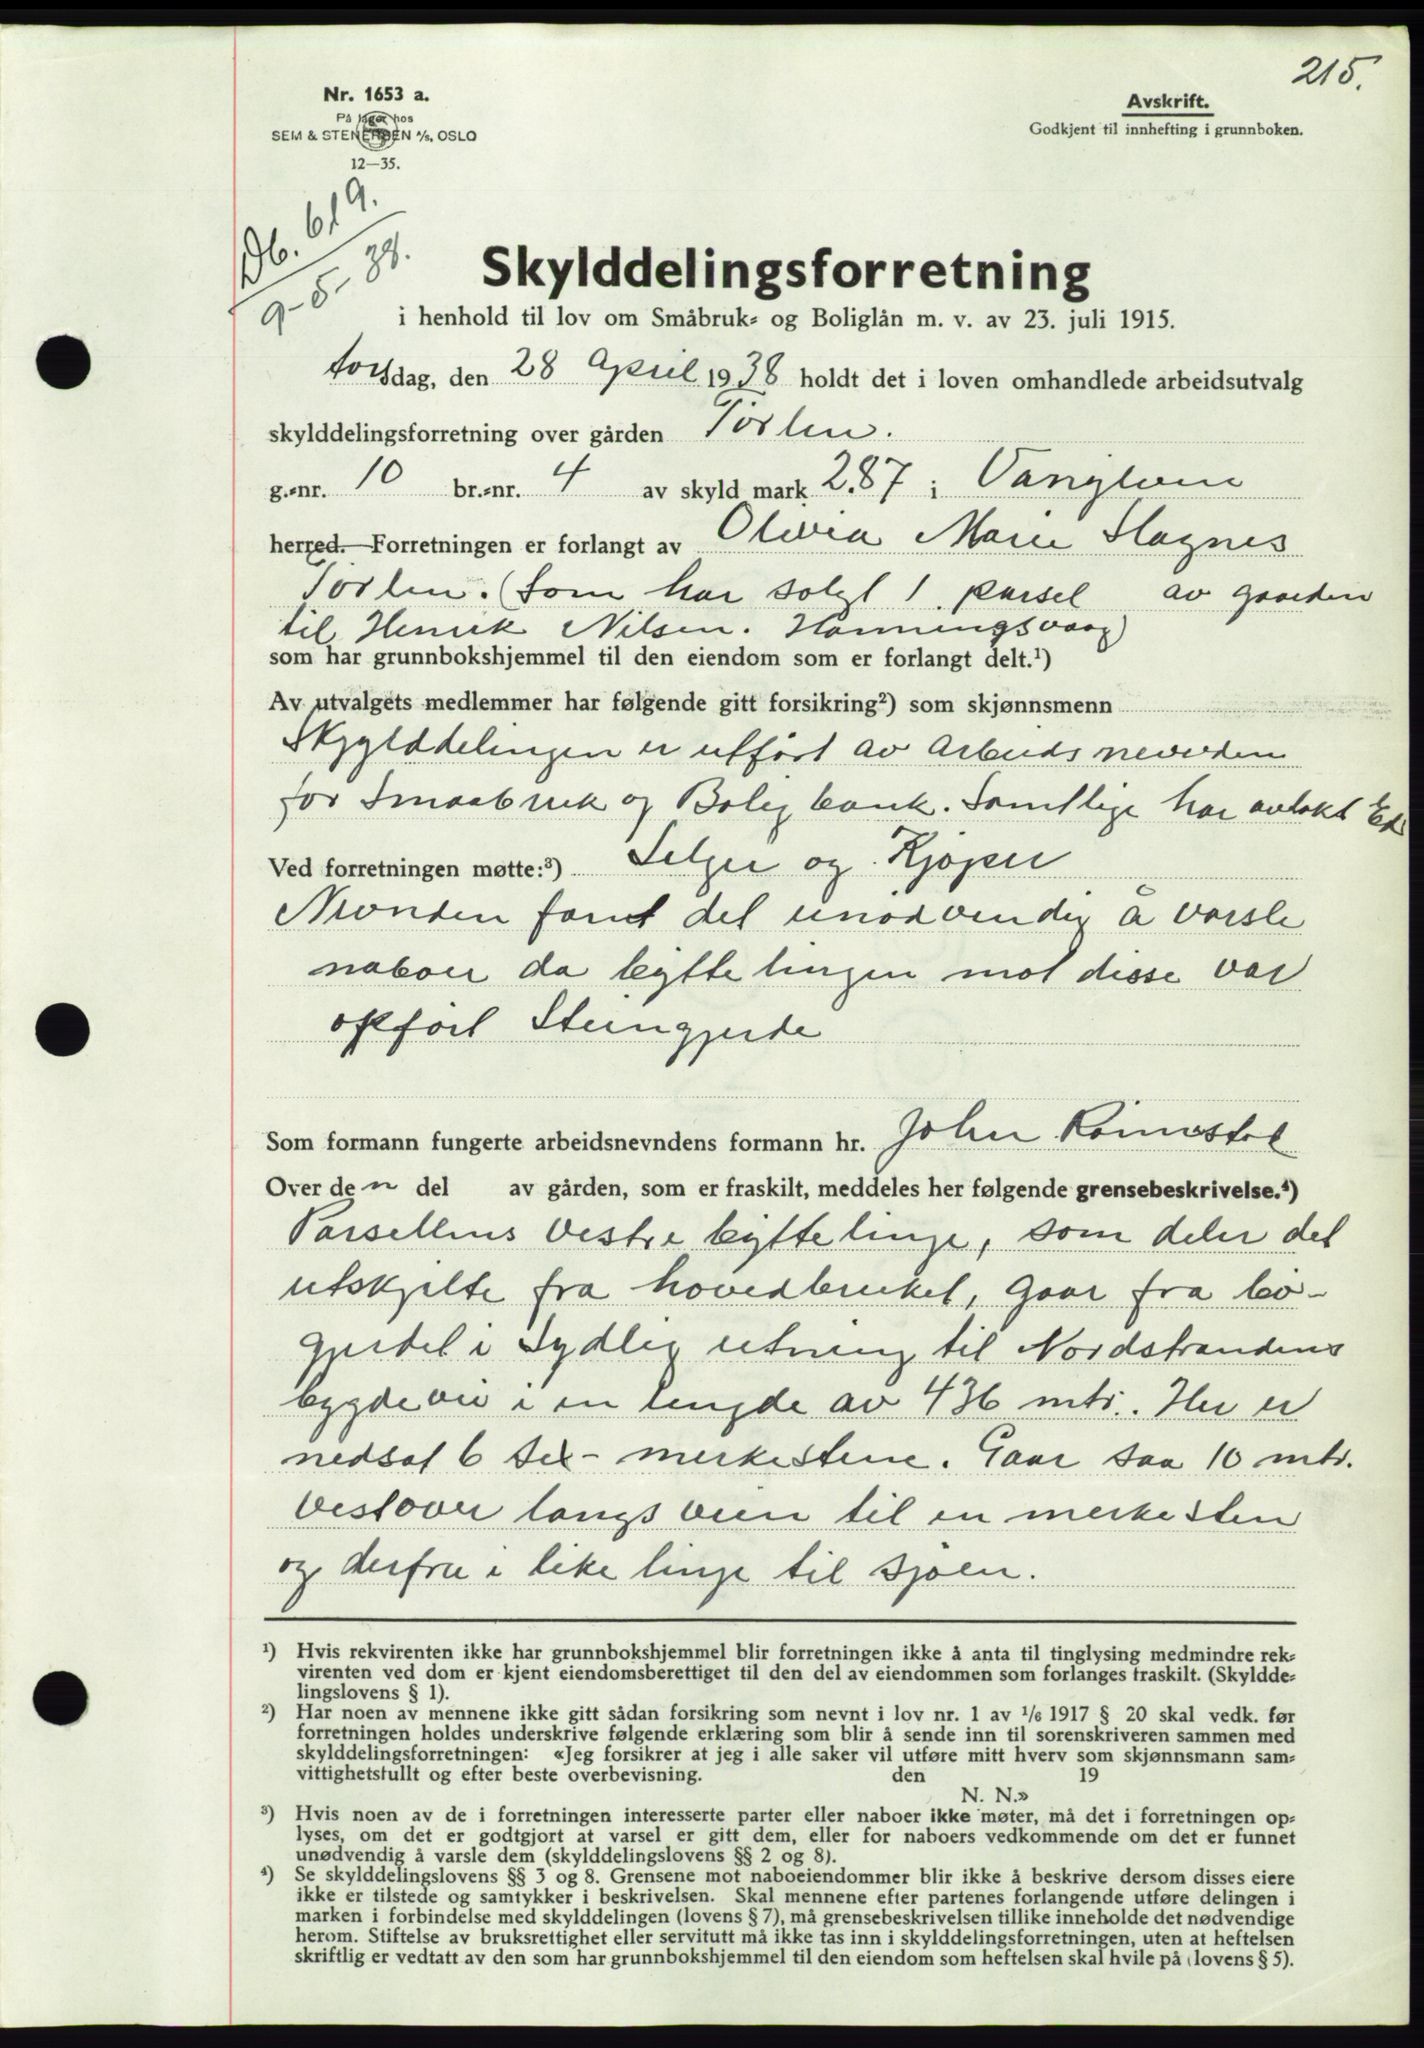 215.
Nr. 1653 a.
På lager hos
SEM & STENERSEN A/S, OSLO
12—35.
Avskrift.
Godkjent til innhefting i grunnboken.
Db. 619.
9-5-38.
Skylddelingsforretning
i henhold til lov om Småbruk- og Boliglån m. v. av 23. juli 1915.
torsdag, den 28 April 1938 holdt det i loven omhandlede arbeidsutvalg
skylddelingsforretning over gården Torlen.
g.-nr. 10 br.-nr. 4 av skyld mark 2.87 i Vanylven
herred. Forretningen er forlangt av Olivia Marie Hagnes
Torlen. (Som har solgt 1 parsel av gaarden
til Henrik Nilsen. Honningsvaag)
som har grunnbokshjemmel til den eiendom som er forlangt delt.¹)
Av utvalgets medlemmer har følgende gitt forsikring²) som skjønnsmenn
Skyylddelingen er utført av Arbeidsnevnden
for Smaabruk og Bolig bank. Samtlige har avlakt Ed
Ved forretningen møtte:³) Selger og Kjøper
Nevnden fant det unødvendig å varsle
naboer da byttelingen mot disse var
opført Steingjerde
Som formann fungerte arbeidsnevndens formann hr. John Roimestal
Over den del av gården, som er fraskilt, meddeles her følgende grensebeskrivelse.⁴)
Parsellens vestre byttelinje, som deler det
utskjilte fra hovedbruket, gaar fra bø-
gjerdet i Sydlig retning til Nordstrandens
bygdevei i en lengde av 436 mtr. Her er
nedsat 6 sex- merkestene. Gaar saa 10 mtr.
vestover langs veien til en merkesten
og derfra i like linje til sjøen.
¹) Hvis rekvirenten ikke har grunnbokshjemmel blir forretningen ikke å anta til tinglysing medmindre rek-
virenten ved dom er kjent eiendomsberettiget til den del av eiendommen som forlanges fraskilt. (Skyldde-
lingslovens § 1).
²) Har noen av mennene ikke gitt sådan forsikring som nevnt i lov nr. 1 av 1/6 1917 § 20 skal vedk. før
forretningen holdes underskrive følgende erklæring som blir å sende inn til sorenskriveren sammen med
skylddelingsforretningen: «Jeg forsikrer at jeg i alle saker vil utføre mitt hverv som skjønnsmann sam-
vittighetsfullt og efter beste overbevisning. den 19
N. N.»
³) Hvis noen av de i forretningen interesserte parter eller naboer ikke møter, må det i forretningen op-
lyses, om det er godtgjort at varsel er gitt dem, eller for naboers vedkommende om det er funnet
unødvendig å varsle dem (skylddelingslovens §§ 2 og 8).
⁴) Se skylddelingslovens §§ 3 og 8. Grensene mot naboeiendommer blir ikke å beskrive dersom disses eiere
ikke er tilstede og samtykker i beskrivelsen. Skal mennene efter partenes forlangende utføre delingen i
marken i forbindelse med skylddelingen (lovens § 7), må grensebeskrivelsen tillike inneholde det nødvendige
herom. Stiftelse av bruksrettighet eller servitutt må ikke tas inn i skylddelingsforretningen, uten at heftelsen
skriftlig er vedtatt av den som har grunnbokshjemmel til den eiendom som heftelsen skal hvile på (lovens § 5).